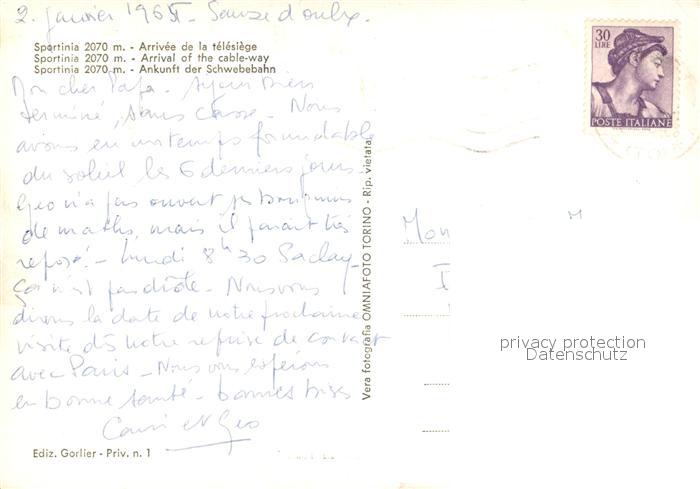 2. janvier 1965. Sauze d'oulx.
Sportinia 2070 m. - Arrivée de la télésiège
Sportinia 2070 m. - Arrival of the cable-way
Sportinia 2070 m. - Ankunft der Schwebebahn
Mon cher Papa. Séjour bien
terminé, sans casse. Nous
avons eu un temps formidable
du soleil les 6 derniers jours.
Geo n'a pas ouvert ses bouquins
de maths, mais il paraît très
reposé. - Lundi 8h30 Saclay.
Ça n'est pas drôle. Nous vous
dirons la date de notre prochaine
visite dès notre reprise de contact
avec Paris - Nous vous espérons
en bonne santé - bonnes bises
et Geo
Ediz. Gorlier - Priv. n. 1
Vera fotografia OMNIAFOTO TORINO - Rip. vietata
30
LIRE
POSTE ITALIANE
privacy protection
Datenschutz